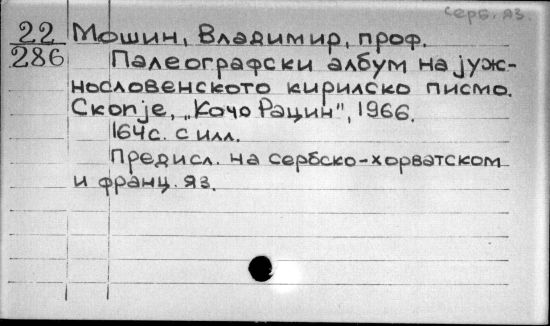 серб. яз.
22 Мошин, Владимир, проф.
286 Палеографски албум на јуж-
нословенското кирилско писмо.
Скопје, „Кочо Рацин", 1966.
164с. с илл.
Предисл. на сербско-хорватском
и франц. яз.